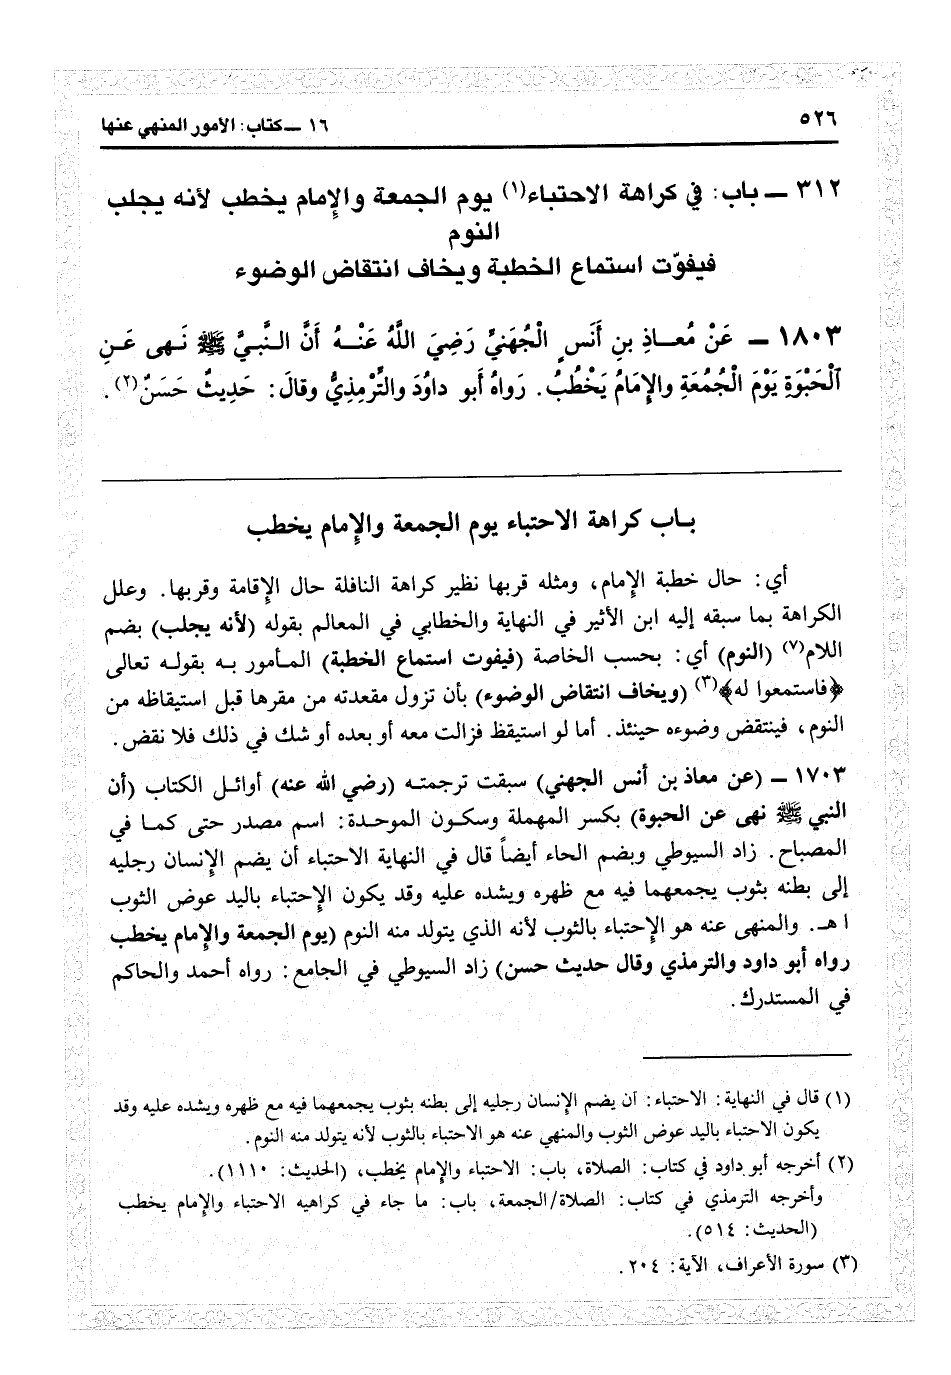 ٥٢٦
١٦ ــ كتاب: الأمور المنهي عنها
٣١٢ ــ باب: في كراهة الاحتباء(١) يوم الجمعة والإمام يخطب لأنه يجلب
النوم
فيفوّت استماع الخطبة ويخاف انتقاض الوضوء
١٨٠٣ ــ عَنْ مُعــاذِ بنِ أَنَسٍ الْجُهَنيِّ رَضِيَ اللَّهُ عَنْــهُ أَنَّ النَّبيَّ ﷺ نَهى عَـنِ
ٱلْحَبْوَةِ يَوْمَ الْجُمُعَةِ والإِمَامُ يَخْطُبُ. رَواهُ أَبو داوُدَ والتِّرْمِذيُّ وقالَ: حَدِيثٌ حَسَنٌ(٢).
بـاب كراهة الاحتباء يوم الجمعة والإمام يخطب
أي: حال خطبة الإِمام، ومثله قربها نظير كراهة النافلة حال الإِقامة وقربها. وعلل
الكراهة بما سبقه إليه ابن الأثير في النهاية والخطابي في المعالم بقوله (لأنه يجلب) بضم
اللام(٧) (النوم) أي: بحسب الخاصة (فيفوت استماع الخطبة) المـأمور بـه بقولـه تعالى
﴿فاستمعوا له﴾(٣) (ويخاف انتقاض الوضوء) بأن تزول مقعدته من مقرها قبل استيقاظه من
النوم، فينتقض وضوءه حينئذ. أما لو استيقظ فزالت معه أو بعده أو شك في ذلك فلا نقض.
١٧٠٣ ــ (عن معاذ بن أنس الجهني) سبقت ترجمتـه (رضي الله عنه) أوائـل الكتاب (أن
النبي ﷺ نهى عن الحبوة) بكسر المهملة وسكـون الموحـدة: اسم مصدر حتى كمـا في
المصباح. زاد السيوطي وبضم الحاء أيضاً قال في النهاية الاحتباء أن يضم الإِنسان رجليه
إلى بطنه بثوب يجمعهما فيه مع ظهره ويشده عليه وقد يكون الإِحتباء باليد عوض الثوب
ا هـ. والمنهى عنه هو الإِحتباء بالثوب لأنه الذي يتولد منه النوم (يوم الجمعة والإِمام يخطب
رواه أبو داود والترمذي وقال حديث حسن) زاد السيوطي في الجامع: رواه أحمد والحاكم
في المستدرك.
(١) قال في النهاية: الاحتباء: أن يضم الإِنسان رجليه إلى بطنه بثوب يجمعهما فيه مع ظهره ويشده عليه وقد
يكون الاحتباء باليد عوض الثوب والمنهي عنه هو الاحتباء بالثوب لأنه يتولد منه النوم.
(٢) أخرجه أبو داود في كتاب: الصلاة، باب: الاحتباء والإِمام يخطب، (الحديث: ١١١٠).
وأخرجه الترمذي في كتاب: الصلاة/الجمعة، باب: ما جاء في كراهيه الاحتباء والإِمام يخطب
(الحديث: ٥١٤).
(٣) سورة الأعراف، الآية: ٢٠٤.